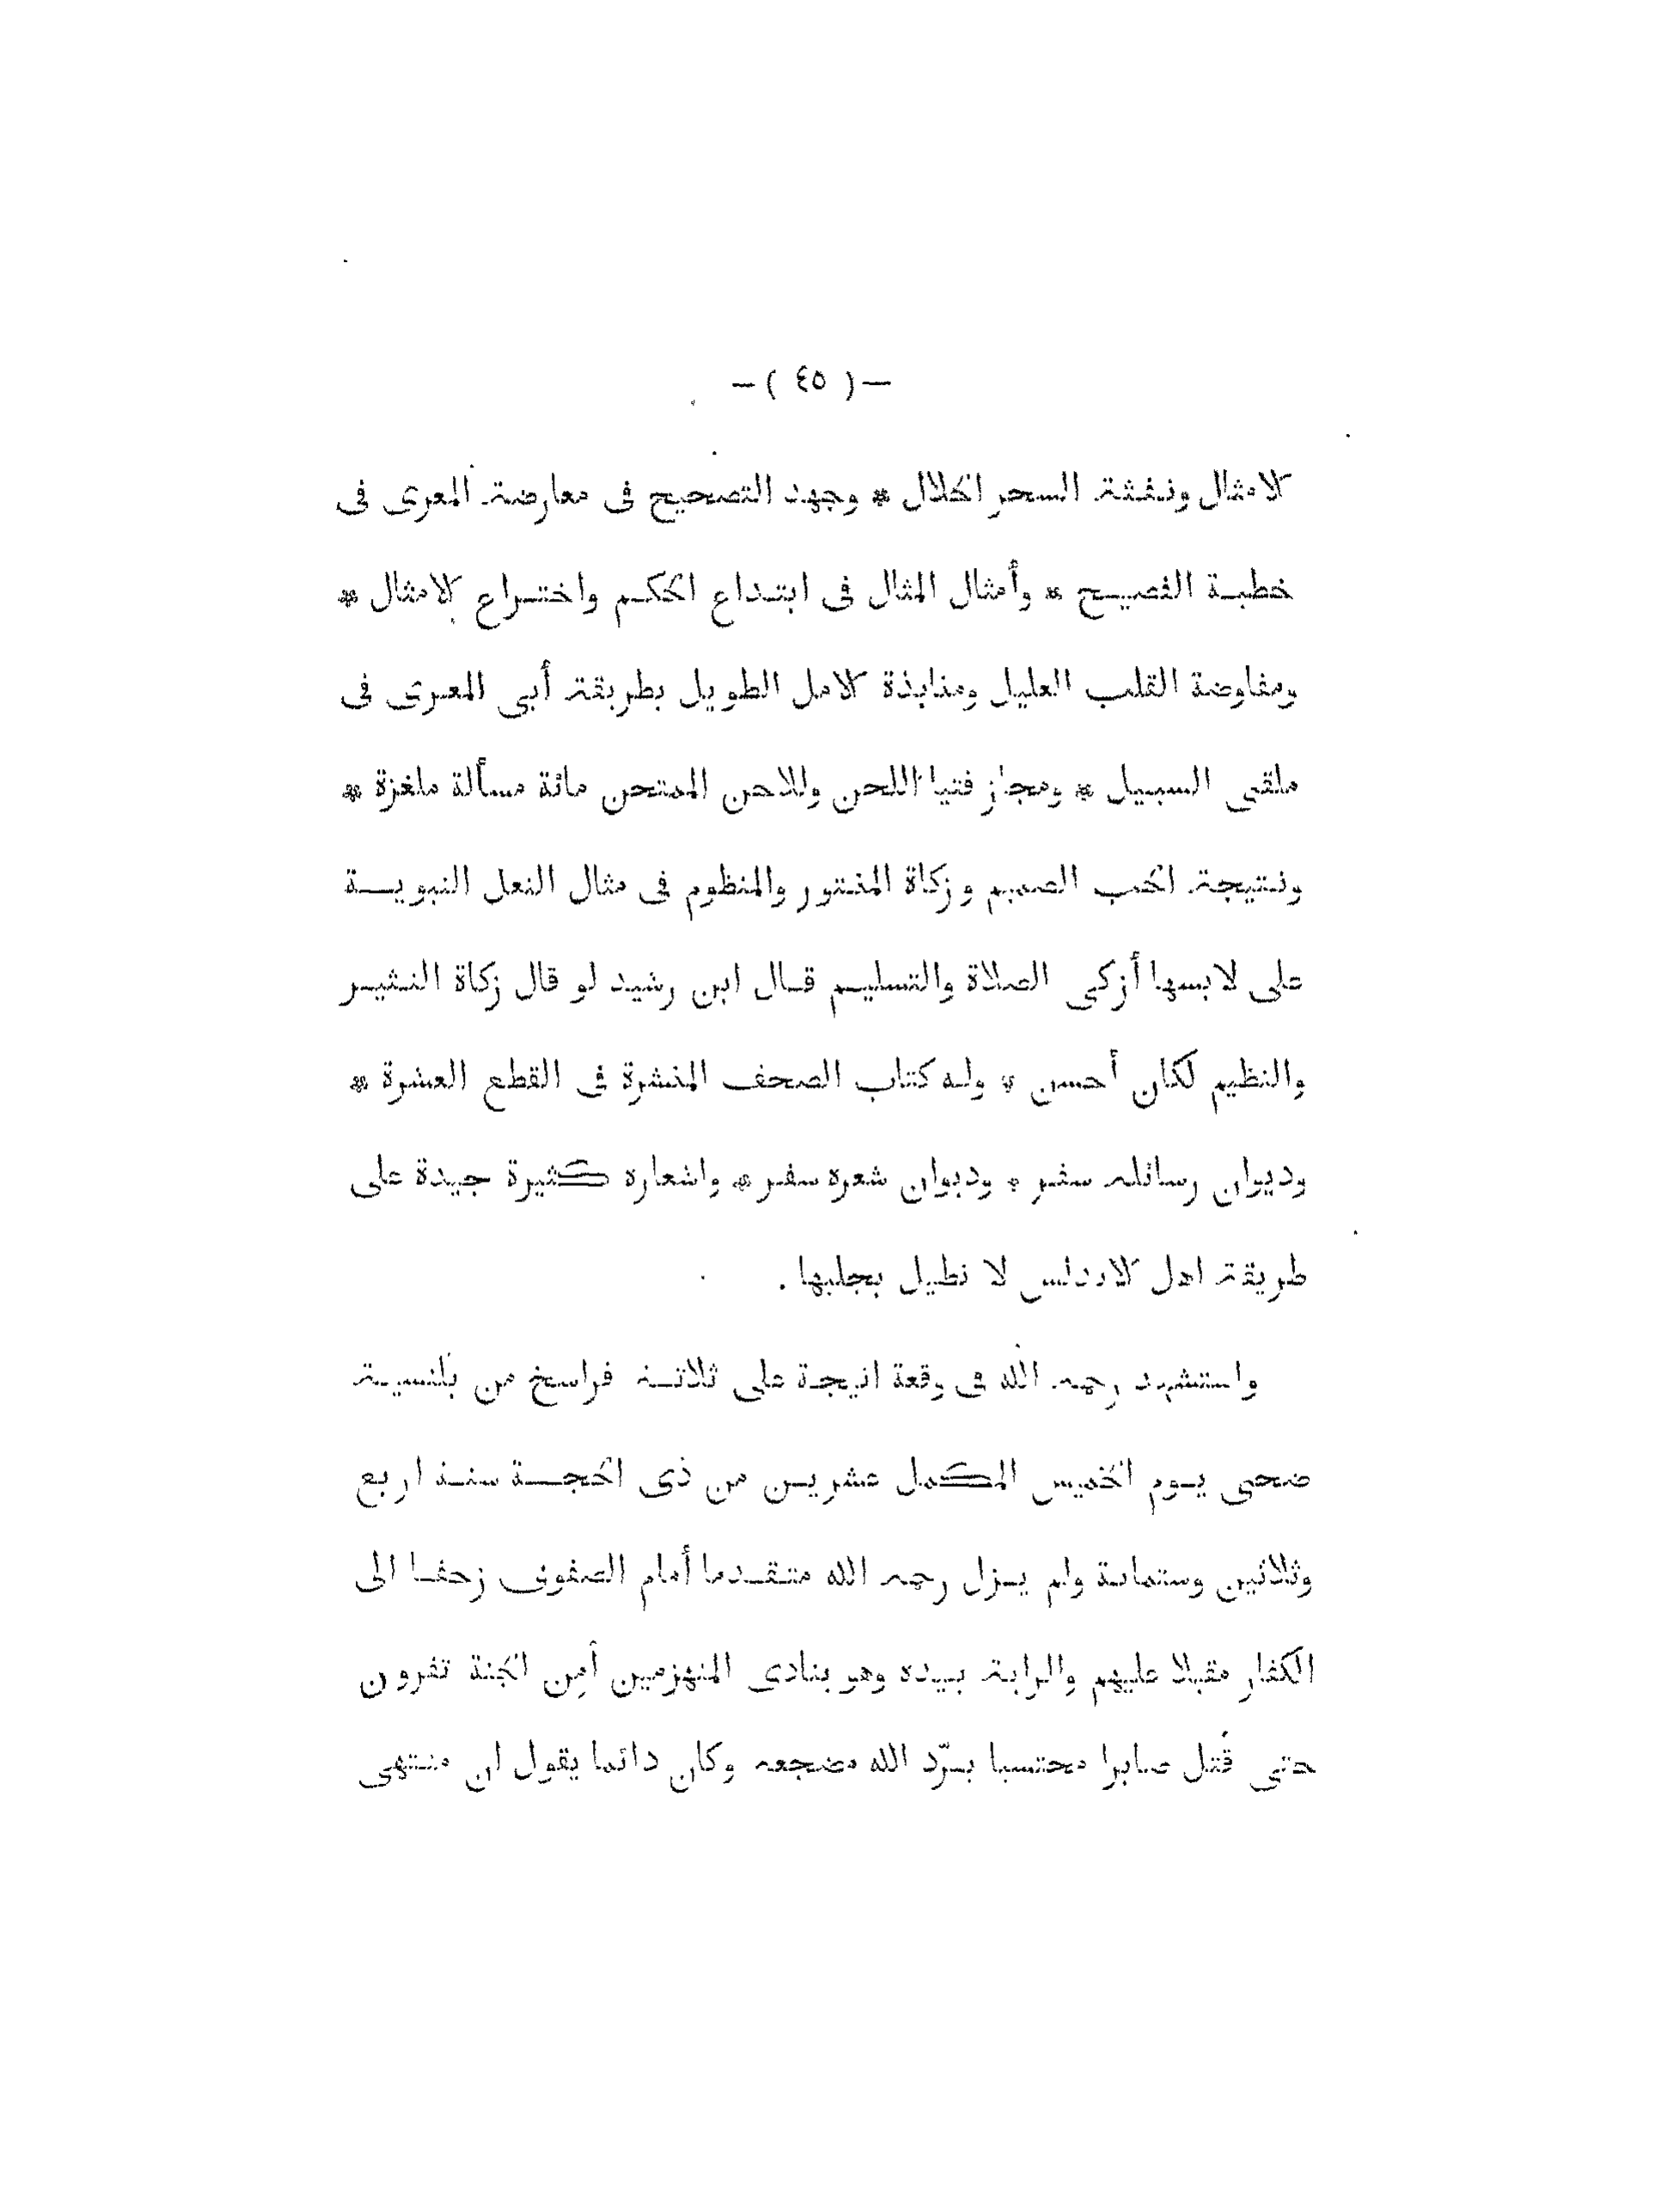 — ( ٤٥ ) —
الامثال ونفثة السحر الحلال * وجهد التصحيح فى معارضة المعرى فى
خطبة الفصيح * وأمثال المثال فى ابتداع الحكم واختراع الامثال *
ومفاوضة القلب العليل ومنابذة الامل الطويل بطريقة أبى المعرى فى
ملقى السبيل * ومجاز فتيا اللحن وللاحن الممتحن مائة مسألة ملغزة *
ونتيجة الحب الصميم وزكاة المنثور والمنظوم فى مثال النعل النبوية
على لابسها أزكى الصلاة والتسليم قال ابن رشيد لو قال زكاة النثير
والنظيم لكان أحسن * وله كتاب الصحف المنشرة فى القطع العشرة *
وديوان رسائله سفر * وديوان شعره سفر * واشعاره كثيرة جيدة على
طريقة اهل الاندلس لا نطيل بجلبها .
واستشهد رحمه الله فى وقعة انيجة على ثلاثة فراسخ من بلنسية
ضحى يوم الخميس المكمل عشرين من ذى الحجة سنة اربع
وثلاثين وستمائة ولم يزل رحمه الله متقدما أمام الصفوف زحفا الى
الكفار مقبلا عليهم والراية بيده وهو ينادى المنهزمين أمِن الجنة تفرون
حتى قُتل صابرا محتسبا برّد الله مضجعه وكان دائما يقول ان منتهى